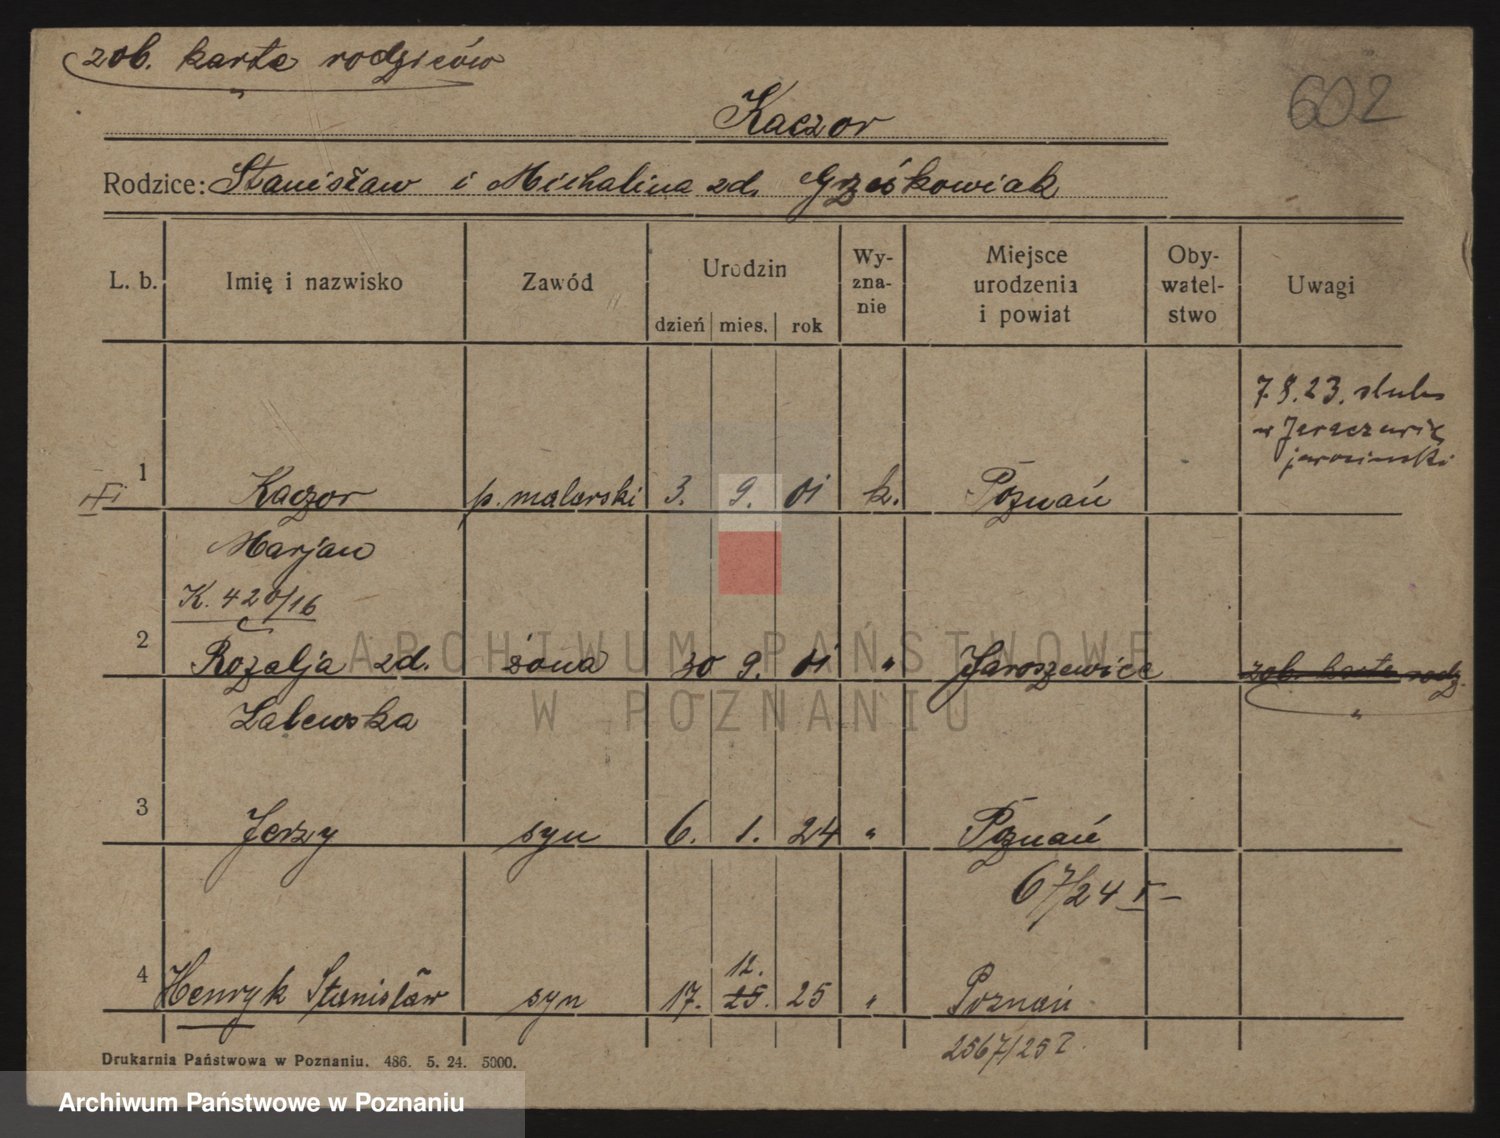 zob. karte rodziców
602
Kaczor
Rodzice: Stanisław i Michalina zd. Grześkowiak
L. b. Imię i nazwisko Zawód Urodzin Wy-zna-nie Miejsce urodzenia i powiat Oby-watel-stwo Uwagi
dzień mies. rok
7.8.23. slub
w Jaraczewie
jarocinski
1 Kaczor p. malarski 3. 9. 01 k. Poznań
Marjan
K. 420/16
2 Rozalja zd. żona 30 9. 01 " Jaroszewice zob. karte rodz.
Zalewska
3 Jerzy syn 6. 1. 24 " Poznań
67/24 I
12.
4 Henryk Stanisław syn 17. 25. 25 " Poznań
2567/25
Drukarnia Państwowa w Poznaniu. 486. 5. 24. 5000.
ARCHIWUM PAŃSTWOWE
W POZNANIU
Archiwum Państwowe w Poznaniu